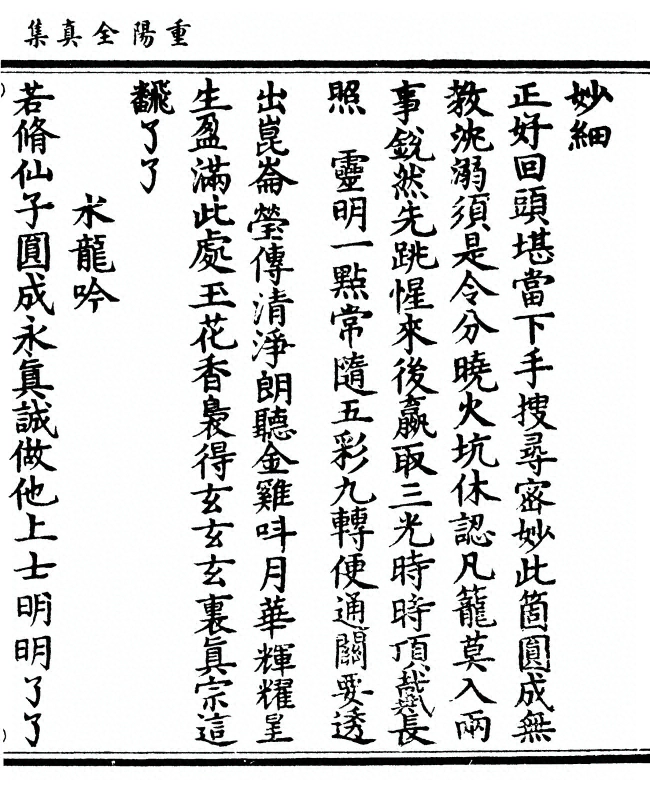 重陽全真集
妙細
正好回頭堪當下手搜尋宻妙此箇圓成無
教沈溺須是令分曉火坑休認凡籠莫入兩
事銳然先跳惺來後贏取三光時時頂戴長
照　靈明一點常隨五彩九轉便通關要透
出崑崙瑩傳清淨朗聽金雞呌月華輝耀呈
生盈滿此處玉花香裊得玄玄玄裏眞宗這
飜了了
水龍吟
若脩仙子圓成永眞誠做他上士明明了了